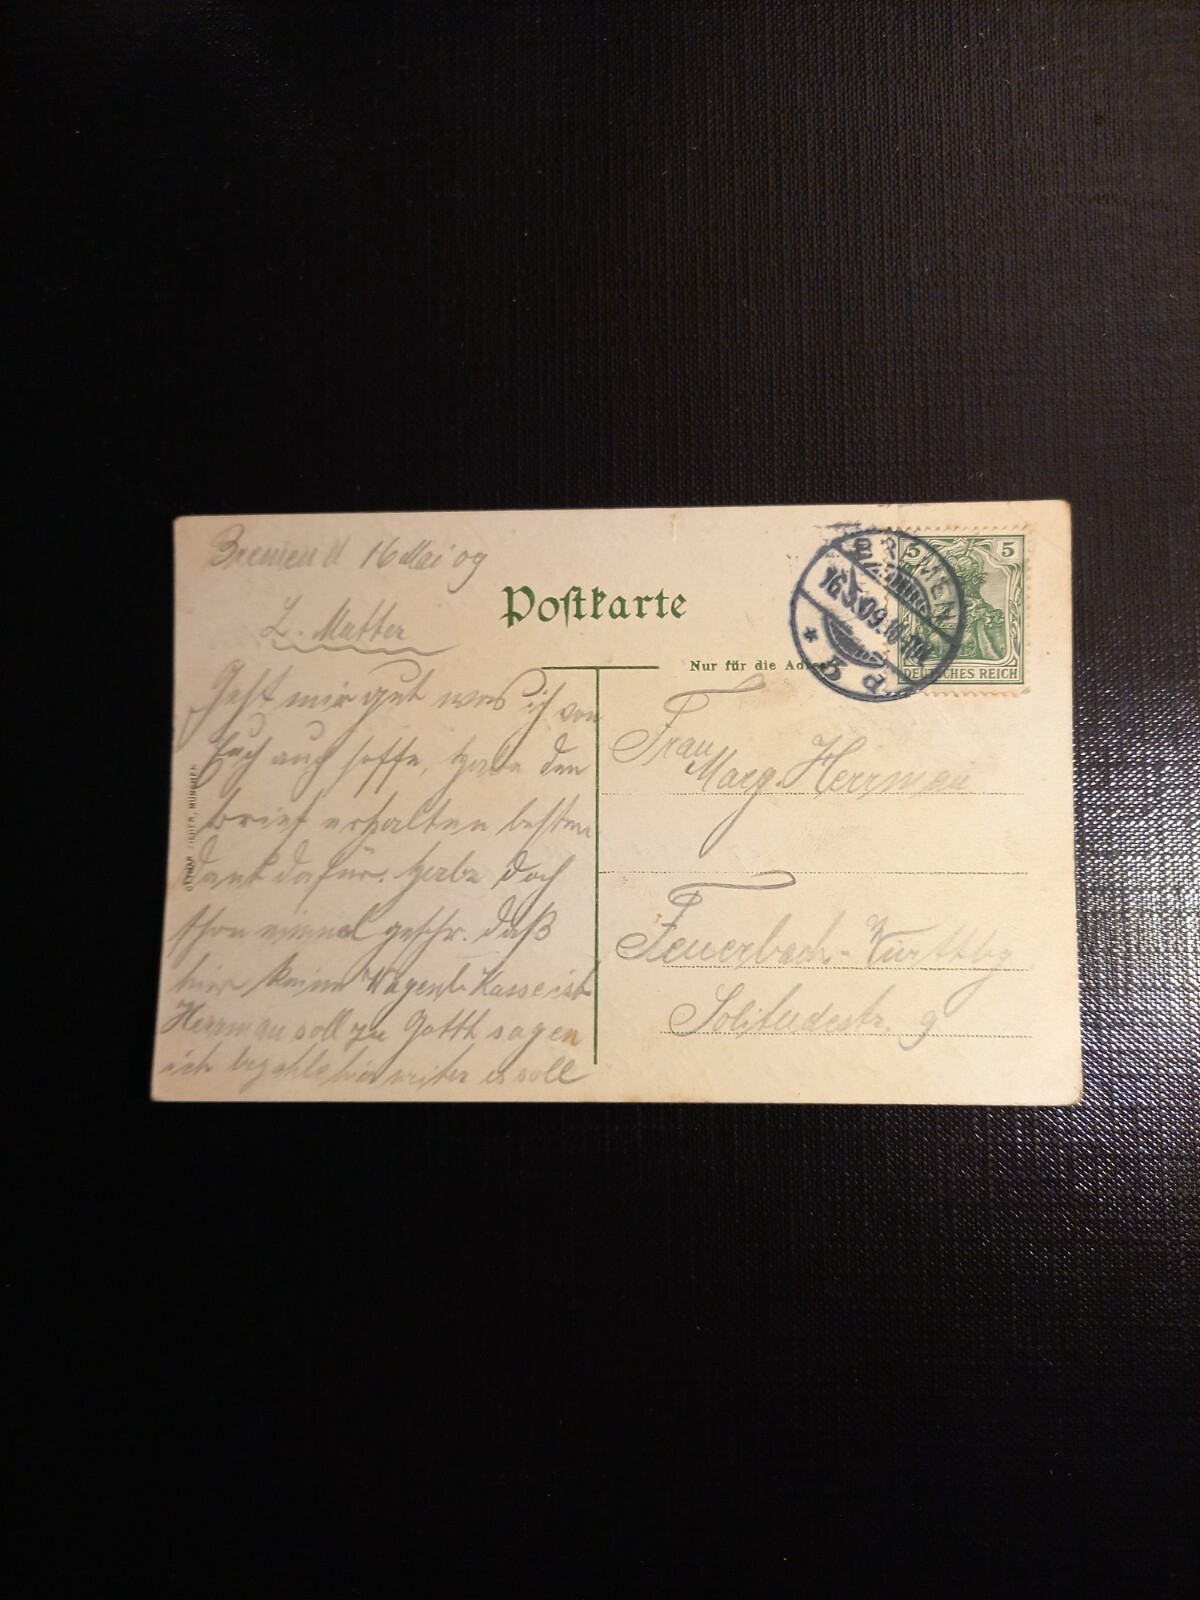 Bremen d 16 Mai 09
L. Mutter
Geht mir gut was ich von
Euch auch hoffe, habe den
Brief erhalten besten
Dank dafür. Habe doch
schon einmal geschr. daß
hier keine Kasse ist
Herrman soll zu Gottl sagen
ich bezahle hier weiter es soll
Postkarte
Nur für die Adresse
Frau
Marg. Herrman
Feuerbach - Württbg
Solitudestr. 9
BREMEN
16.5.09.10-11N.
* 5 d
5 5
DEUTSCHES REICH
OTTMAR ZIEHER, MÜNCHEN